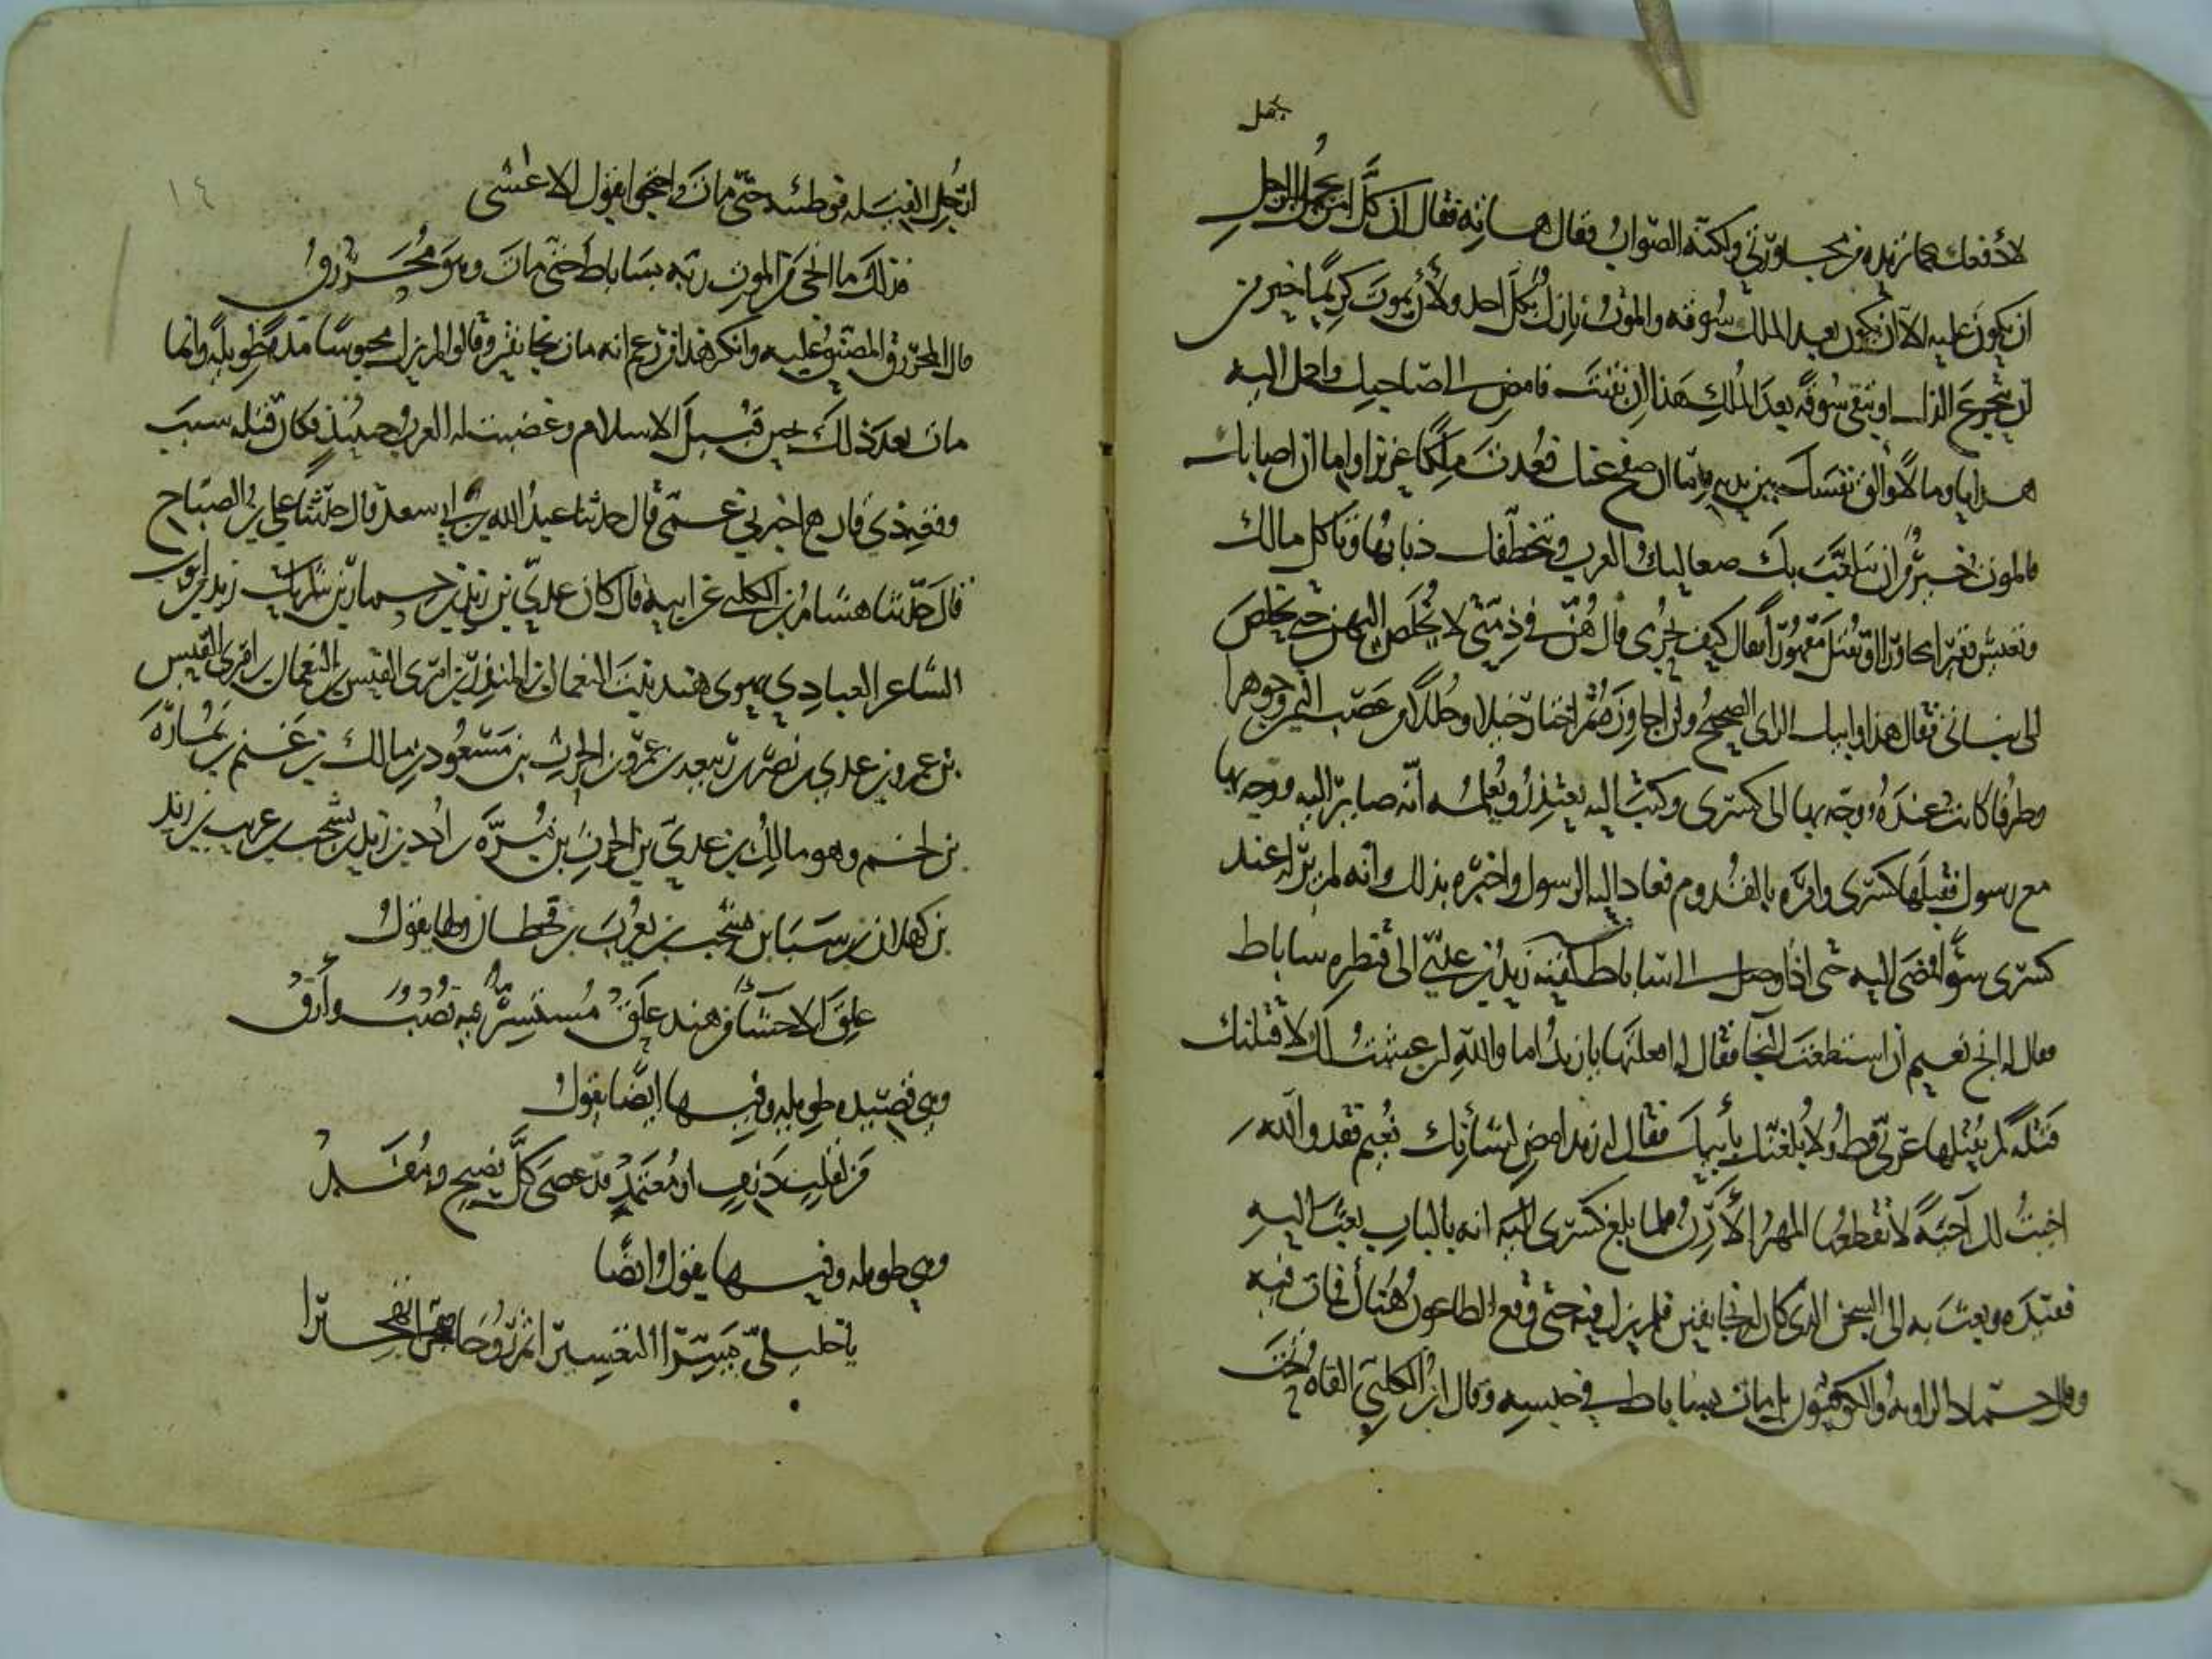 يجمل
لأدفعك عما تريده من مجاورتي ولكنه الصواب فقال هاته فقال ان كل امر يجمل بالرجل
ان يكون عليه الا ان يكون بعد الملك سوقه والموت نازل بكل احد ولأن تموت كريما خير من
ان تتجرع الذل او تبقى سوقة بعد الملك هذا ان بقيت فامض الى صاحبك واحمل اليه
هدايا ومالا والق نفسك بين يديه فاما ان صفح عنك فعدت ملكا عزيزا واما ان اصابك
فالموت خير من ان يتلعب بك صعاليك العرب وتتخطفك ذئابها وتاكل مالك
وتعيش فقيرا مجاورا او تقتل مقهورا فقال كيف بحرمي قال هن في ذمتي لا يخلص اليهن حتى يخلص
الى بناتي فقال هذا وابيك الراي الصحيح ولن اجاوزه ثم اختار خيلا وحللا من عصب اليمن وجوهرا
وطرفا كانت عنده ووجه بها الى كسرى وكتب اليه يعتذر ويعلمه انه صائر اليه ووجه بها
مع رسول فقبلها كسرى وامره بالقدوم فعاد اليه الرسول واخبره بذلك وانه لم ير له عند
كسرى سوءا فمضى اليه حتى اذا وصل الى ساباط لقيه زيد بن عدي الى قنطرة ساباط
فقال له انج نعيم ان استطعت النجا فقال له افعلتها يا زيد اما والله لئن عشت لك لاقتلنك
قتلة لم يقتلها عربي قط ولا يلغنك بأبيك فقال له زيد امض لشأنك نعيم فقد والله
اخيت لك آخية لا يقطعها المهر الأرن فلما بلغ كسرى انه بالباب بعث اليه
فقيده وبعث به الى السجن الذي كان له بخانقين فلم يزل فيه حتى وقع الطاعون هناك فمات فيه
وقال حماد الراوية والكوفيون بل مات بساباط في حبسه وقال ابن الكلبي القاه تحت
ارجل الفيله فوطئته حتى مات واحتجوا بقول الاعشى
فذلك ما انجى من الموت ربه بساباط حتى مات وهو محرزق
قال المحرزق المضيق عليه وانكر هذا من زعم انه مات بخانقين وقالوا لم يزل محبوسا مدة طويلة وانما
مات بعد ذلك حين قبيل الاسلام وغضبت له العرب حينئذ فكان قتله سبب
وقعة ذي قار اخبرني عمي قال حدثنا عبد الله بن ابي سعد قال حدثنا علي بن الصباح
قال حدثنا هشام بن الكلبي عن ابيه قال كان عدي بن زيد بن حماد بن زيد بن ايوب
الشاعر العبادي يهوى هند بنت النعمان بن المنذر بن امرئ القيس بن النعمان بن امرئ القيس
بن عمرو بن عدي بن نصر بن ربيعة بن عمرو بن الحرث بن مسعود بن مالك بن غنم بن نمارة
بن لخم وهو مالك بن عدي بن الحرث بن مرة بن ادد بن زيد بن يشجب بن عريب بن زيد
بن كهلان بن سبا بن يشجب بن يعرب بن قحطان ولها يقول
علق الاحشا من هند علق مستسر فيه نصب وأرق
وهي قصيده طويله وفيها ايضا يقول
من لقلب دنف او معتمد قد عصى كل نصيح ومفد
وهي طويله وفيها يقول ايضا
يا خليلي يسرا التعسيرا ثم روحا فهجرا تهجيرا
١٤